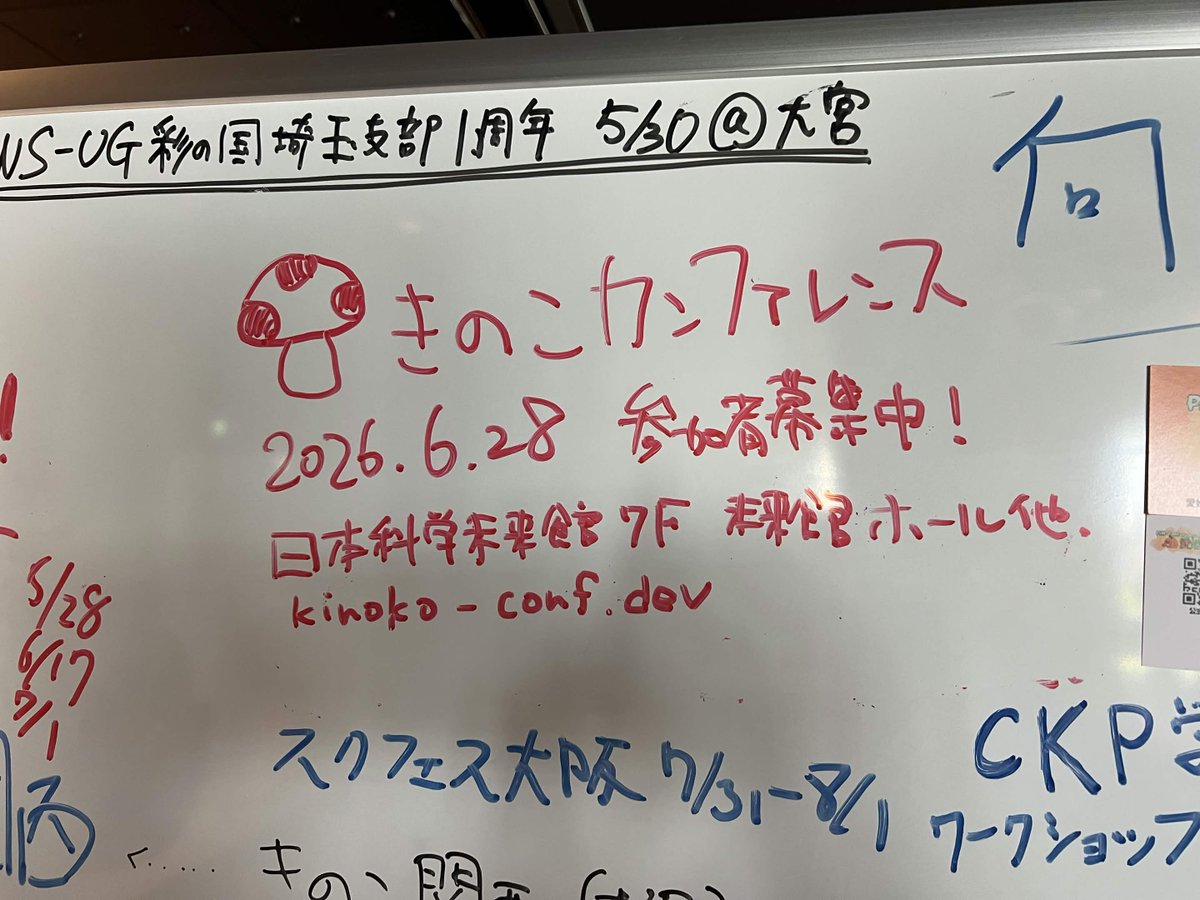 WS-UG 彩の国埼玉支部1周年 5/30@大宮
きのこカンファレンス
2026.6.28 参加者募集中!
日本科学未来館 7F 未来館ホール他.
kinoko-conf.dev
!
5/28
6/17
7/1
スクフェス大阪 7/31-8/1
CKP学
ワークショップ
<……